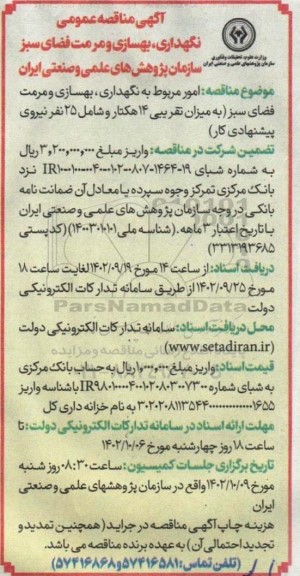 آگهی مناقصه عمومی
نگهداری، بهسازی و مرمت فضای سبز
سازمان پژوهش های علمی و صنعتی ایران
وزارت علوم، تحقیقات و فناوری
سازمان پژوهشهای علمی و صنعتی ایران
موضوع مناقصه: امور مربوط به نگهداری، بهسازی و مرمت
فضای سبز (به میزان تقریبی ۱۴ هکتار و شامل ۲۵ نفر نیروی
پیشنهادی کار)
تضمین شرکت در مناقصه: واریز مبلغ ۳٫۲۰۰٫۰۰۰٫۰۰۰ ریال
به شماره شبای
نزد
بانک مرکزی تمرکز وجوه سپرده یا معادل آن ضمانت نامه
بانکی در وجه سازمان پژوهش های علمی و صنعتی ایران
با تاریخ اعتبار ۳ ماهه. (شناسه ملی ۱۴۰۰۳۰۱۰۱) (کدپستی
۳۳۱۳۱۹۳۶۸۵)
دریافت اسناد: از ساعت ۱۴ مورخ ۱۴۰۲/۰۹/۱۹ لغایت ساعت ۱۸
مورخ ۱۴۰۲/۰۹/۲۵ از طریق سامانه تدارکات الکترونیکی
دولت
محل دریافت اسناد: سامانه تدارکات الکترونیکی دولت
(www.setadiran.ir)
قیمت اسناد: واریز مبلغ ۱٫۰۰۰٫۰۰۰ ریال به حساب بانک مرکزی
به شبای شماره
با شناسه واریز
به نام خزانه داری کل
مهلت ارائه اسناد در سامانه تدارکات الکترونیکی دولت: تا
ساعت ۱۸ روز چهارشنبه مورخ ۱۴۰۲/۱۰/۰۶
تاریخ برگزاری جلسات کمیسیون: ساعت ۰۸:۳۰ روز شنبه
مورخ ۱۴۰۲/۱۰/۰۹ واقع در سازمان پژوهشهای علمی و صنعتی
ایران
هزینه چاپ آگهی مناقصه در جراید (همچنین تمدید و
تجدید احتمالی آن) به عهده برنده مناقصه می باشد.
(تلفن تماس: ۵۷۴۱۶۵۸۱ و ۵۷۴۱۶۸۶۸)
ParsNamadData